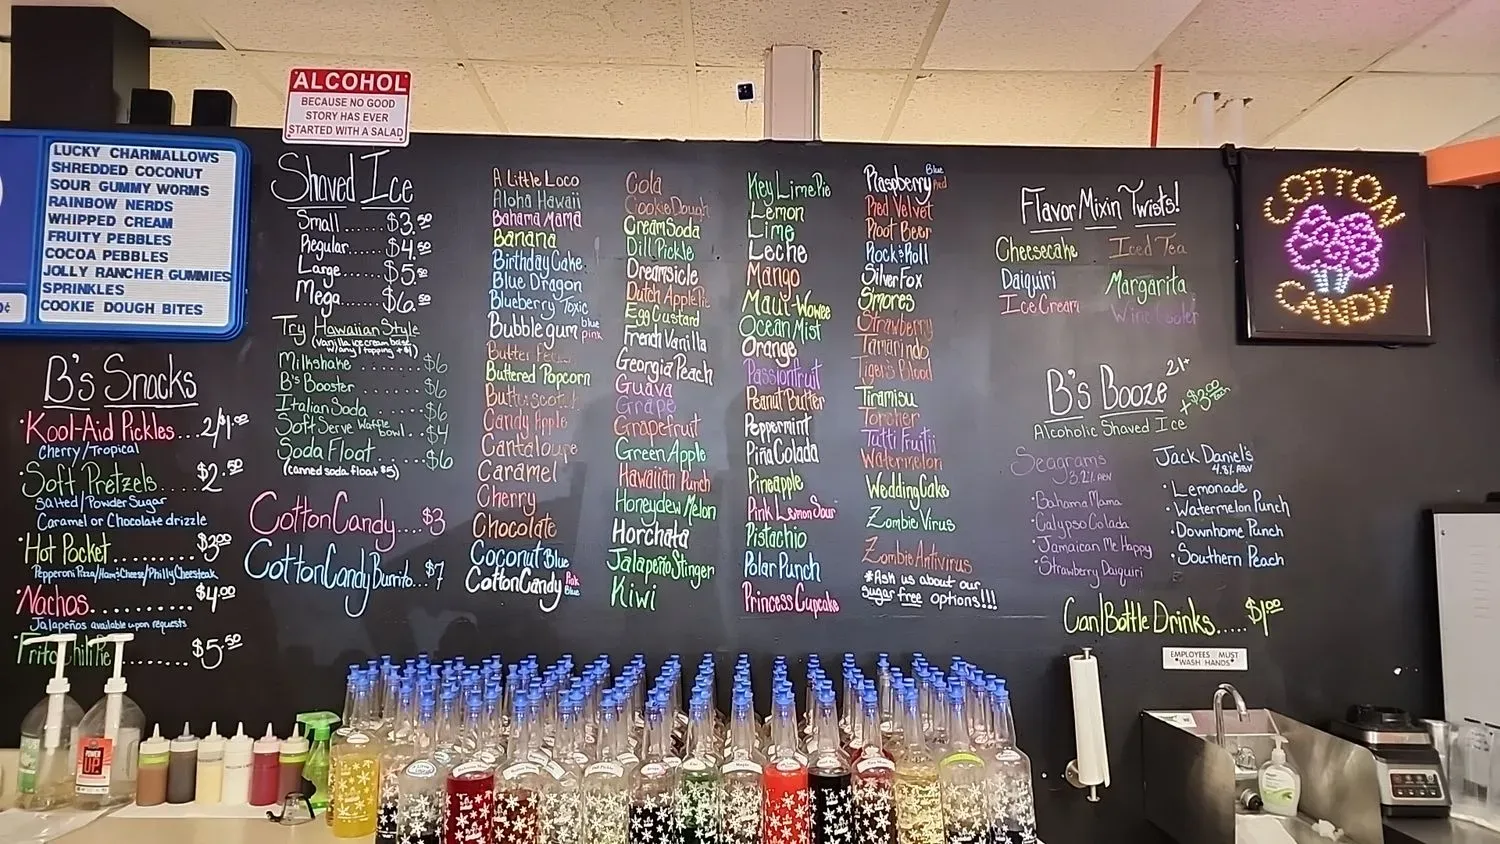 ALCOHOL
BECAUSE NO GOOD
STORY HAS EVER
STARTED WITH A SALAD
LUCKY CHARMALLOWS
SHREDDED COCONUT
SOUR GUMMY WORMS
RAINBOW NERDS
WHIPPED CREAM
FRUITY PEBBLES
COCOA PEBBLES
JOLLY RANCHER GUMMIES
SPRINKLES
COOKIE DOUGH BITES
B's Snacks
·Kool-Aid Pickles...2/$1.00
Cherry/Tropical
·Soft Pretzels.....$2.50
Salted/Powder Sugar
Caramel or Chocolate drizzle
·Hot Pocket.........$3.00
Pepperoni Pizza/Ham&Cheese/Philly Cheesesteak
·Nachos..........$4.00
Jalapeños available upon requests
·Frito Chili Pie.......$5.50
Shaved Ice
Small......$3.50
Regular....$4.50
Large......$5.50
Mega.......$6.50
Try Hawaiian Style
(vanilla ice cream base
w/any 1 topping +$1)
Milkshake........$6
B's Booster.......$6
Italian Soda......$6
Soft Serve Waffle
bowl..$4
Soda Float......$6
(canned soda float $5)
Cotton Candy...$3
Cotton Candy Burrito...$7
A Little Loco
Aloha Hawaii
Bahama Mama
Banana
Birthday Cake
Blue Dragon
Blueberry Toxic
Bubble gum blue pink
Butter
Buttered Popcorn
Butterscotch
Candy Apple
Cantaloupe
Caramel
Cherry
Chocolate
Coconut Blue
Cotton Candy Pink Blue
Cola
Cookie Dough
Cream Soda
Dill Pickle
Dreamsicle
Dutch Apple Pie
Egg Custard
French Vanilla
Georgia Peach
Guava
Grape
Grapefruit
Green Apple
Hawaiian Punch
Honeydew Melon
Horchata
Jalapeño Stinger
Kiwi
Key Lime Pie
Lemon
Lime
Leche
Mango
Maui-Wowee
Ocean Mist
Orange
Passionfruit
Peanut Butter
Peppermint
Piña Colada
Pineapple
Pink Lemon Sour
Pistachio
Polar Punch
Princess Cupcake
Raspberry Blue Red
Red Velvet
Root Beer
Rock & Roll
Silver Fox
Smores
Strawberry
Tamarindo
Tiger's Blood
Tiramisu
Torcher
Tutti Fruitii
Watermelon
Wedding Cake
Zombie Virus
Zombie Antivirus
*Ask us about our
sugar free options!!!
Flavor Mixin Twists!
Cheesecake
Iced Tea
Daiquiri
Margarita
Ice Cream
Wine Cooler
B's Booze 21+
+$3.00
Alcoholic Shaved Ice
Seagrams
3.2% ABV
·Bahama Mama
·Calypso Colada
·Jamaican Me Happy
·Strawberry Daiquiri
Jack Daniel's
4.8% ABV
·Lemonade
·Watermelon Punch
·Downhome Punch
·Southern Peach
Can/Bottle Drinks.....$1.00
COTTON
CANDY
EMPLOYEES MUST
"WASH HANDS"
POWER
UP